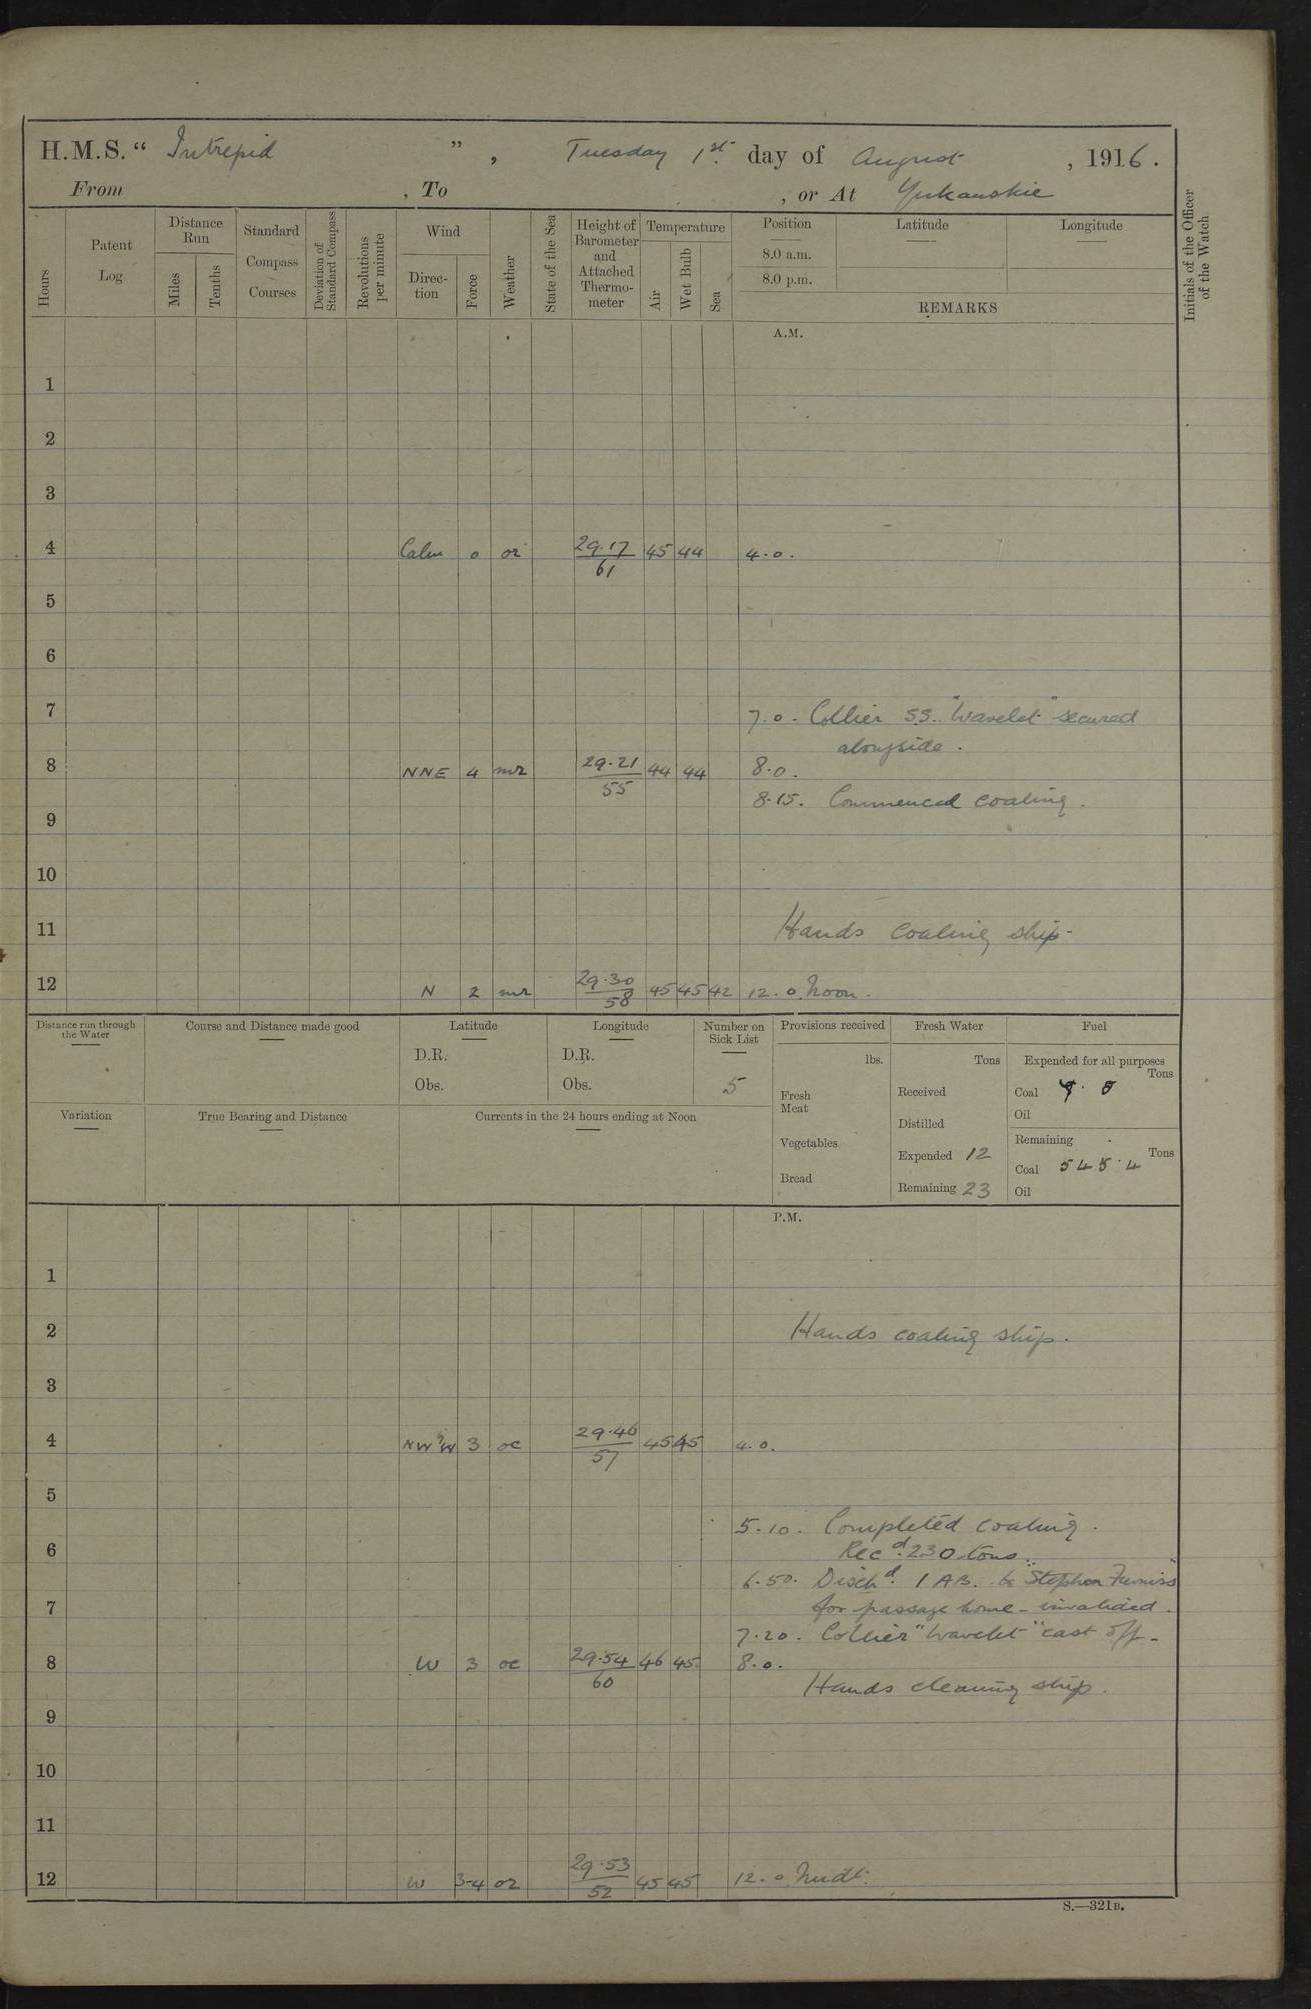 H.M.S. “ Intrepid ” , Tuesday 1st day of August , 1916.
From , To , or At Yukanskie
Hours
Patent Log
Distance Run
Miles
Tenths
Standard Compass Courses
Deviation of Standard Compass
Revolutions per minute
Wind
Direction
Force
Weather
State of the Sea
Height of Barometer and Attached Thermometer
Temperature
Air
Wet Bulb
Sea
Position
8.0 a.m.
8.0 p.m.
Latitude
Longitude
REMARKS
Initials of the Officer of the Watch
A.M.
1
2
3
4 Calm 0 or 29.17/61 45 44 4.0.
5
6
7 7.0. Collier S.S. "Wavelet" secured
alongside.
8 NNE 4 mr 29.21/55 44 44 8.0.
8.15. Commenced coaling.
9
10
11 Hands coaling ship.
12 N 2 mr 29.30/58 45 45 42 12.0 Noon.
Distance run through the Water
Course and Distance made good
Latitude
D.R.
Obs.
Longitude
D.R.
Obs.
Number on Sick List
5
Provisions received
lbs.
Fresh Meat
Vegetables
Bread
Fresh Water
Tons
Received
Distilled
Expended 12
Remaining 23
Fuel
Expended for all purposes
Tons
Coal
Oil
Remaining
Tons
Coal 545.4
Oil
Variation
True Bearing and Distance
Currents in the 24 hours ending at Noon
P.M.
1
2 Hands coaling ship.
3
4 3 oc 29.46/57 45 45 4.0.
5
5.10. Completed coaling.
6 Recd. 230 tons.
6.50. Dischd. 1 AB. to "Stephen Furniss"
7 for passage home - invalided.
7.20. Collier "Wavelet" cast off.
8 W 3 oc 29.54/60 46 45 8.0.
Hands cleaning ship.
9
10
11
12 W 3-4 or 29.53/52 45 45 12.0 Midt.
S.—321B.